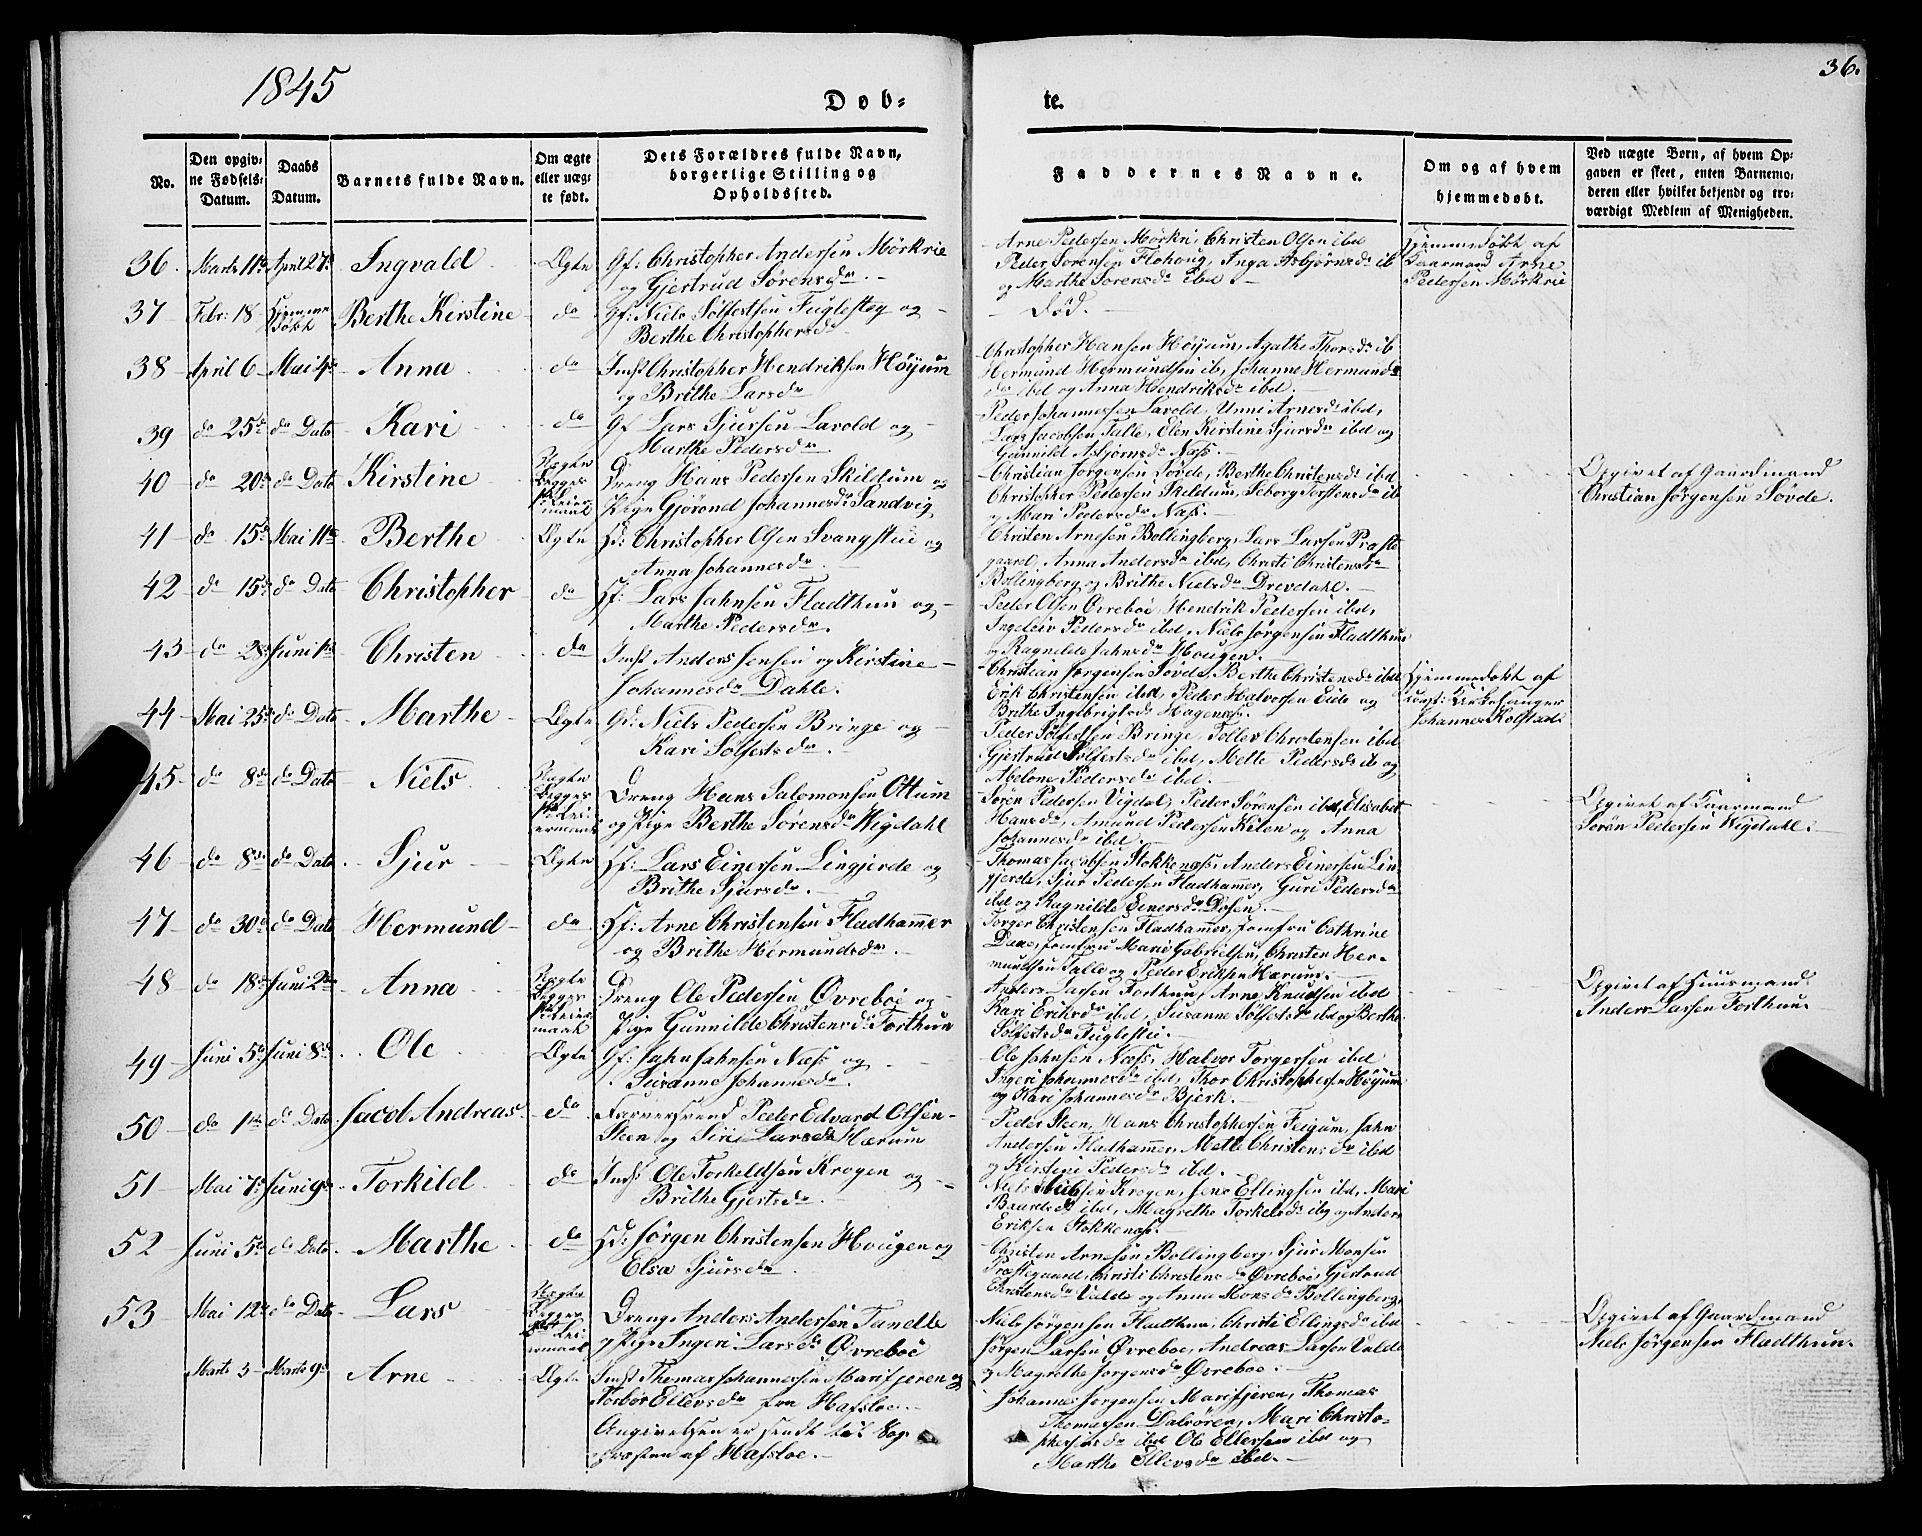 1845
36.
Døb-
te.
No.
Den opgiv-
ne Fødsels-
Datum.
Daabs
Datum.
Barnets fulde Navn.
Om ægte
eller uæg-
te født.
Dets Forældres fulde Navn,
borgerlige Stilling og
Opholdssted.
Faddernes Navne.
Om og af hvem
hjemmedøbt.
Ved uægte Børn, af hvem Op-
gaven er skeet, enten Barnemo-
deren eller hvilket bekjendt og tro-
værdigt Medlem af Menigheden.
36. Marts 11te April 27de Ingvald Ægte Gf: Christopher Andersen Mørkrie
og Gjertrud Sørensdr
Arne Pedersen Mørkri, Christen Olsen ibd
Peder Sørensen Flohoug, Inga Asbjørnsdr ib
og Marthe Sørensdr ibd.
Hjemmedøbt af
Gaarmand Arne
Pedersen Mørkrie
37 Febr: 18 Hjemme
døbt Berthe Kirstine do Gf: Niels Sølfestsen Fuglesteg og
Berthe Christophersdr
død.
38 April 6 Mai 4de Anna do Indst Christopher Hendriksen Høyum
og Brithe Larsdr
Christopher Hansen Høyum, Agathe Thorsdr ib
Hermund Hermundsen ib, Johanne Hermunds
dr ibd og Anna Hendriksdr ibd.
39 do 25de do Dato Kari do Gf Lars Sjursen Lavold og
Marthe Pedersdr
Peder Johannessen Lavold, Unni Arnesdr ibd,
Lars Jacobsen Talle, Elen Kirstine Sjursdr ibd og
Gunnild Asbjørnsdr Næss.
40 do 20de do Dato Kirstine Uægte
Begges
Leier
maal Dreng Hans Pedersen Skildum og
Pige Gjørond Johannesdr Sandvig
Christian Jørgensen Søvde, Berthe Christensdr ibd
Christopher Pedersen Skildum, Seborg Torstensdr ib
og Mari Pedersdr Næss.
Opgivet af Gaardmand
Christian Jørgensen Søvde.
41 do 15de Mai 11te Berthe Ægte Hf: Christopher Olsen Svangstue og
Anna Johannesdr
Christen Arnesen Bollingberg, Lars Larsen Præste
gaard, Anna Andersdr ibd, Christi Christensdr
Bollingberg og Brithe Nielsdr Drevdahl.
42 do 15de do Dato Christopher do Hf: Lars Jahnsen Fladthun og
Marthe Pedersdr
Peder Olsen Øvreboe, Hendrik Pedersen ibd,
Ingeleiv Pedersdr ibd, Niels Jørgensen Fladthun
og Ragnilde Jahnsdr Hougen.
43 do 28de Juni 1te Christen do Indst Anders Jensen og Kirstine
Johannesdr Dahle.
Christian Jørgensen Søvde, Berthe Christensdr ibd
Erik Christensen ibd, Peder Halvorsen Eide og
Brithe Ingebrigtsdr Hagenæss.
Hjemmedøbt af
const: Kirkesanger
Johannes Kolstad.
44 Mai 25de do Dato Marthe Ægte Gd: Niels Pedersen Bringe og
Kari Sølfestsdr
Peder Sølfestsen Bringe, Tollev Christensen ibd
Gjertrud Sølfestsdr ibd, Mette Pedersdr ib og
Abelone Pedersdr ibd.
45 do 8de do Dato Niels Uægte
Begges
Lei-
ermaal Dreng Hans Salomonsen Ottum
og Pige Berthe Sørensdr Wigdahl
Søren Pedersen Vigdal, Peder Sørensen ibd, Elisabet
Hansdr, Amund Pedersen Kilen og Anna
Johannesdr ibd
Opgivet af Gaarmand
Søren Pedersen Wigdahl.
46 do 8de do Dato Sjur Ægte Hf: Lars Einersen Lingjerde og
Brithe Sjursdr
Thomas Jacobsen Stokkenæss, Anders Einersen Lin-
gjerde, Sjur Pedersen Fladhamer, Guri Pedersdr
ibd og Ragnilde Einersdr Døsen.
47 do 30de do Dato Hermund do Hf: Arne Christensen Fladhamer
og Brithe Hermundsdr
Torger Christensen Fladhamer, Jomfru Cathrine
Daae, Jomfru Marie Gabrielsen, Christen Her-
mundsen Talle og Peder Eriksen Hærum.
48 do 18de Juni 2den Anna Uægte
Begges
Leier
maal Dreng Ole Pedersen Øvreboe og
Pige Gunnilde Christensdr Forthun
Anders Larsen Forthun, Arne Knudsen ibd
Kari Eriksdr ibd, Susanne Sølfestsdr ibd og Berthe
Sølfestsdr Fuglestie.
Opgivet af Huusmand
Anders Larsen Forthun
49 Juni 5te Juni 8de Ole Ægte Gf: Jahn Jahnsen Næss og
Susanne Johannesdr
Ole Jahnsen Næss, Halvor Torgersen ibd
Ingeri Johannesdr ibd, Thor Christophersen Høyum
og Kari Johannesdr Bjerk.
50 do 1te do Dato Jacob Andreas do Farversvend Peder Edvard Olsen
Steen og Siri Larsdr Hærum
Peder Steen, Hans Christophersen Feigum, Jahn
Andersen Fladhamer, Mette Christensdr ibd
og Kirstine Pedersdr ibd.
51 Mai 7de Juni 9de Torkild do Indst Ole Torkeldsen Krogen og
Brithe Gjertsdr
Niels Nielsen Krogen, Jens Ellingsen ibd, Mari
Baardsdr ibd, Magrethe Torkelsdr ibd og Anders
Eriksen Stokkenæss.
52 Juni 5te do Dato Marthe do Hd: Jørgen Christensen Hougen og
Elsa Sjursdr
Christen Arnesen Bollingberg, Sjur Monsen
Præstegaard, Christi Christensdr Øvreboe, Gjertrud
Christensdr Valde og Anna Monsdr Bollingberg
53 Mai 12te do Dato Lars Uægte
Begges
Lei
ermaal Dreng Anders Andersen Tandle
og Pige Ingeri Larsdr Øvreboe
Niels Jørgensen Fladthun, Christi Ellingsdr ibd
Jørgen Larsen Øvreboe, Andreas Larsen Valde
og Magrethe Jørgensdr Øvreboe.
Opgivet af Gaardmand
Niels Jørgensen Fladthun.
Marts 3 Marts 9de Arne Ægte Indst Thomas Johannesen Marifjeren og
Torbør Ellevsdr fra Hafsloe.
Angivelsen er sendt til Sog-
præsten af Hafsloe.
Johannes Jørgensen Marifjeren, Thomas
Thomassen Dalsøren, Mari Christo-
phersdr ibd Ole Ellefsen ibd og
Marthe Ellevsdr ibd.